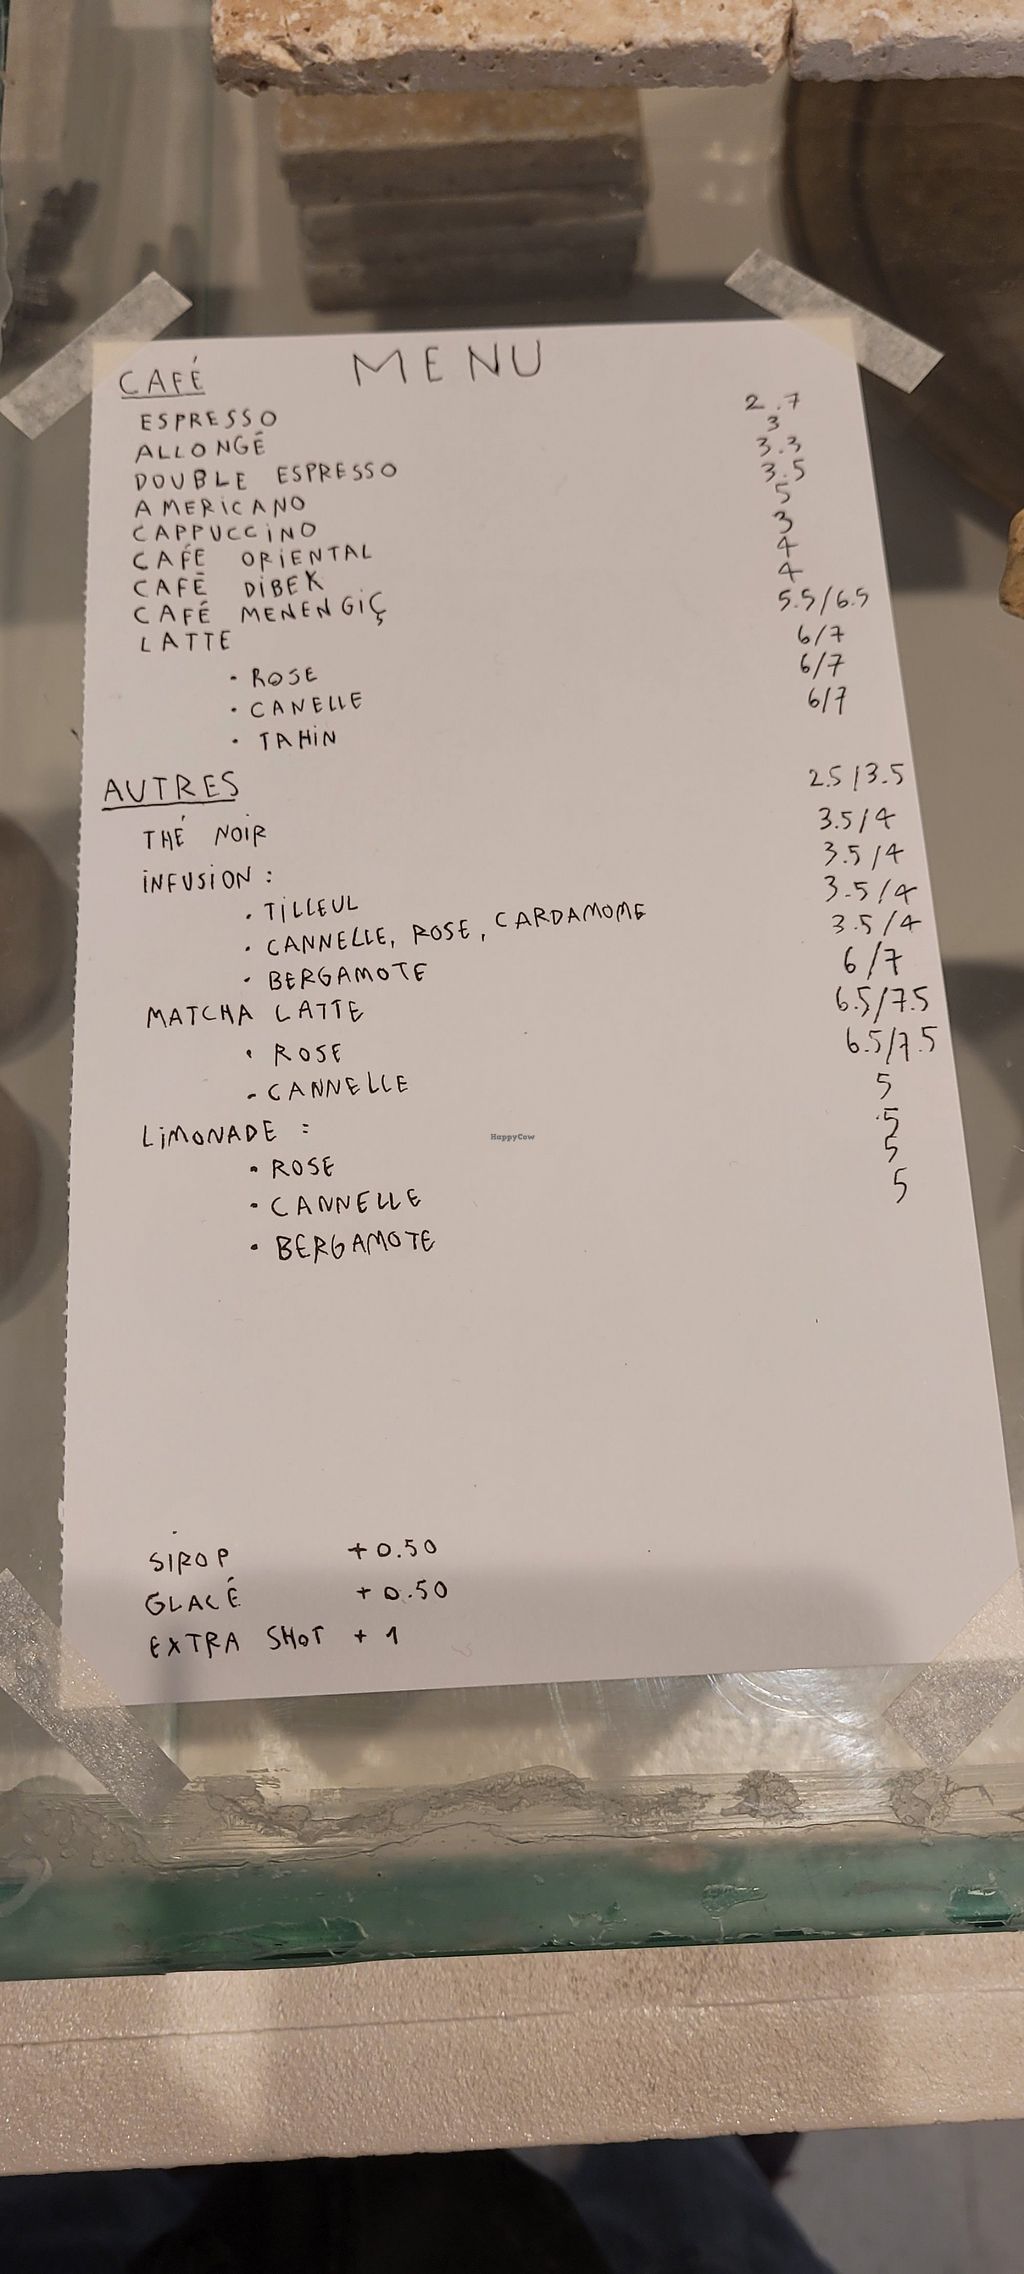 MENU
CAFÉ
ESPRESSO 2.7
ALLONGÉ 3
DOUBLE ESPRESSO 3.3
AMERICANO 3.5
CAPPUCCINO 5
CAFÉ ORIENTAL 3
CAFÉ DIBEK 4
CAFÉ MENENGIÇ 4
LATTE 5.5/6.5
• ROSE 6/7
• CANELLE 6/7
• TAHIN 6/7
AUTRES
THÉ NOIR 2.5/3.5
INFUSION : 3.5/4
• TILLEUL 3.5/4
• CANNELLE, ROSE, CARDAMOME 3.5/4
• BERGAMOTE 3.5/4
MATCHA LATTE 6/7
• ROSE 6.5/7.5
• CANNELLE 6.5/7.5
LIMONADE : 5
• ROSE 5
• CANNELLE 5
• BERGAMOTE 5
SIROP +0.50
GLACÉ +0.50
EXTRA SHOT +1
HappyCow